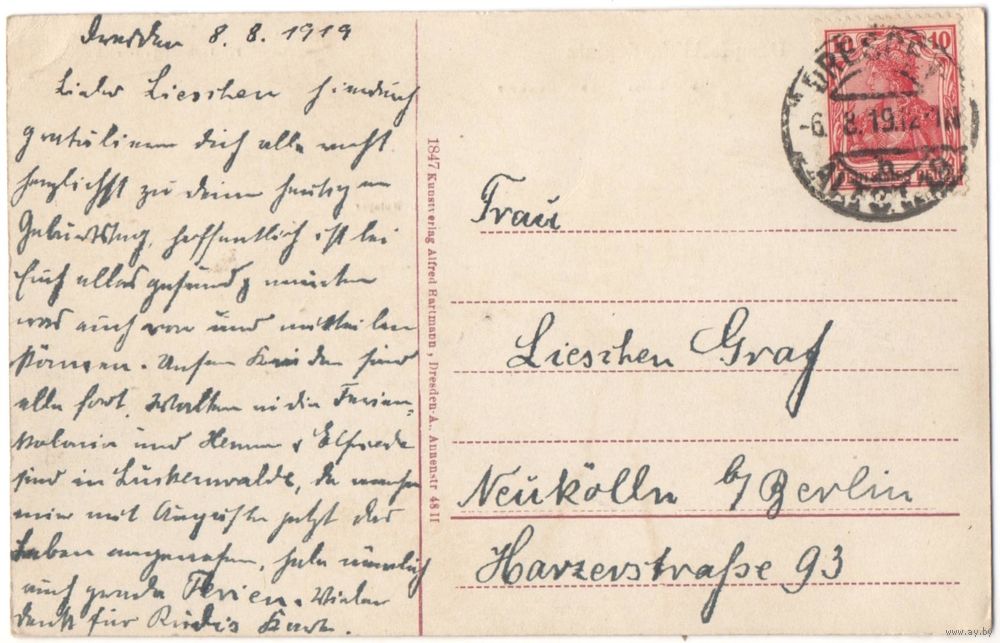 Dresden 8. 8. 1919
Liebes Lieschen hindurch
gratulieren dich alle recht
herzlichst zu deinem heutigen
Geburtstag, hoffentlich ist bei
Euch alles gesund,
was auch von uns mitteilen
können. Unsere Kinder sind
alle fort. Walter in die Ferien-
kolonie und Henny & Elfriede
sind in Luckenwalde, da machen
wir mit Auguste jetzt das
Leben angenehm, habe nämlich
auch gerade Ferien. Vielen
Dank für Rudis Karte.
1847 Kunstverlag Alfred Hartmann, Dresden-A., Annenstr 48 II
10 10
DRESDEN
-6. 8. 19. 12-1N
h
ALTST.
Frau
Lieschen Graf
Neukölln b/ Berlin
Harzerstraße 93
www.ay.by